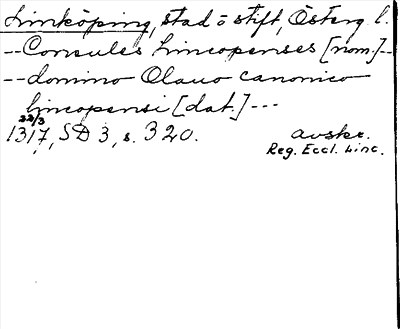 Linköping, stad o stift, Österg. l.
-- Consules Lincopenses [nom.] --
-- domino Olauo canonico
lincopensi [dat.] ---
22/3
1317, SD 3, s. 320. avskr.
Reg. Eccl. Linc.